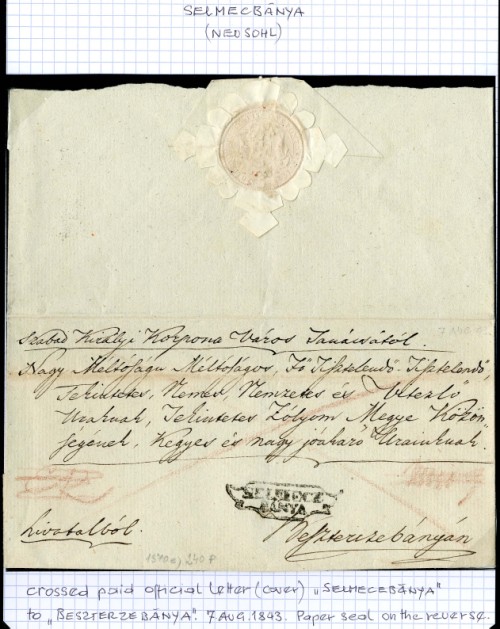 SELMECBÁNYA
(NEUSOHL)
7 AUG
Szabad Királyi Korpona Város Tanácsától.
Nagy Méltóságu Méltóságos, Fő Tisztelendő Tisztelendő,
Tekintetes, Nemes, Nemzetes és Vitézlő
Uraknak, Tekintetes Zólyom Megye Közön
ségenek. Kegyes és nagy jóakaró Urainknak.
SELMECZ
BÁNYA
hivatalból.
Beszterczebányán
240 P
crossed paid official letter (cover) „SELMECEBÁNYA"
to „BESZTERZEBÁNYA". 7 AUG. 1843. Paper seal on the reverse.